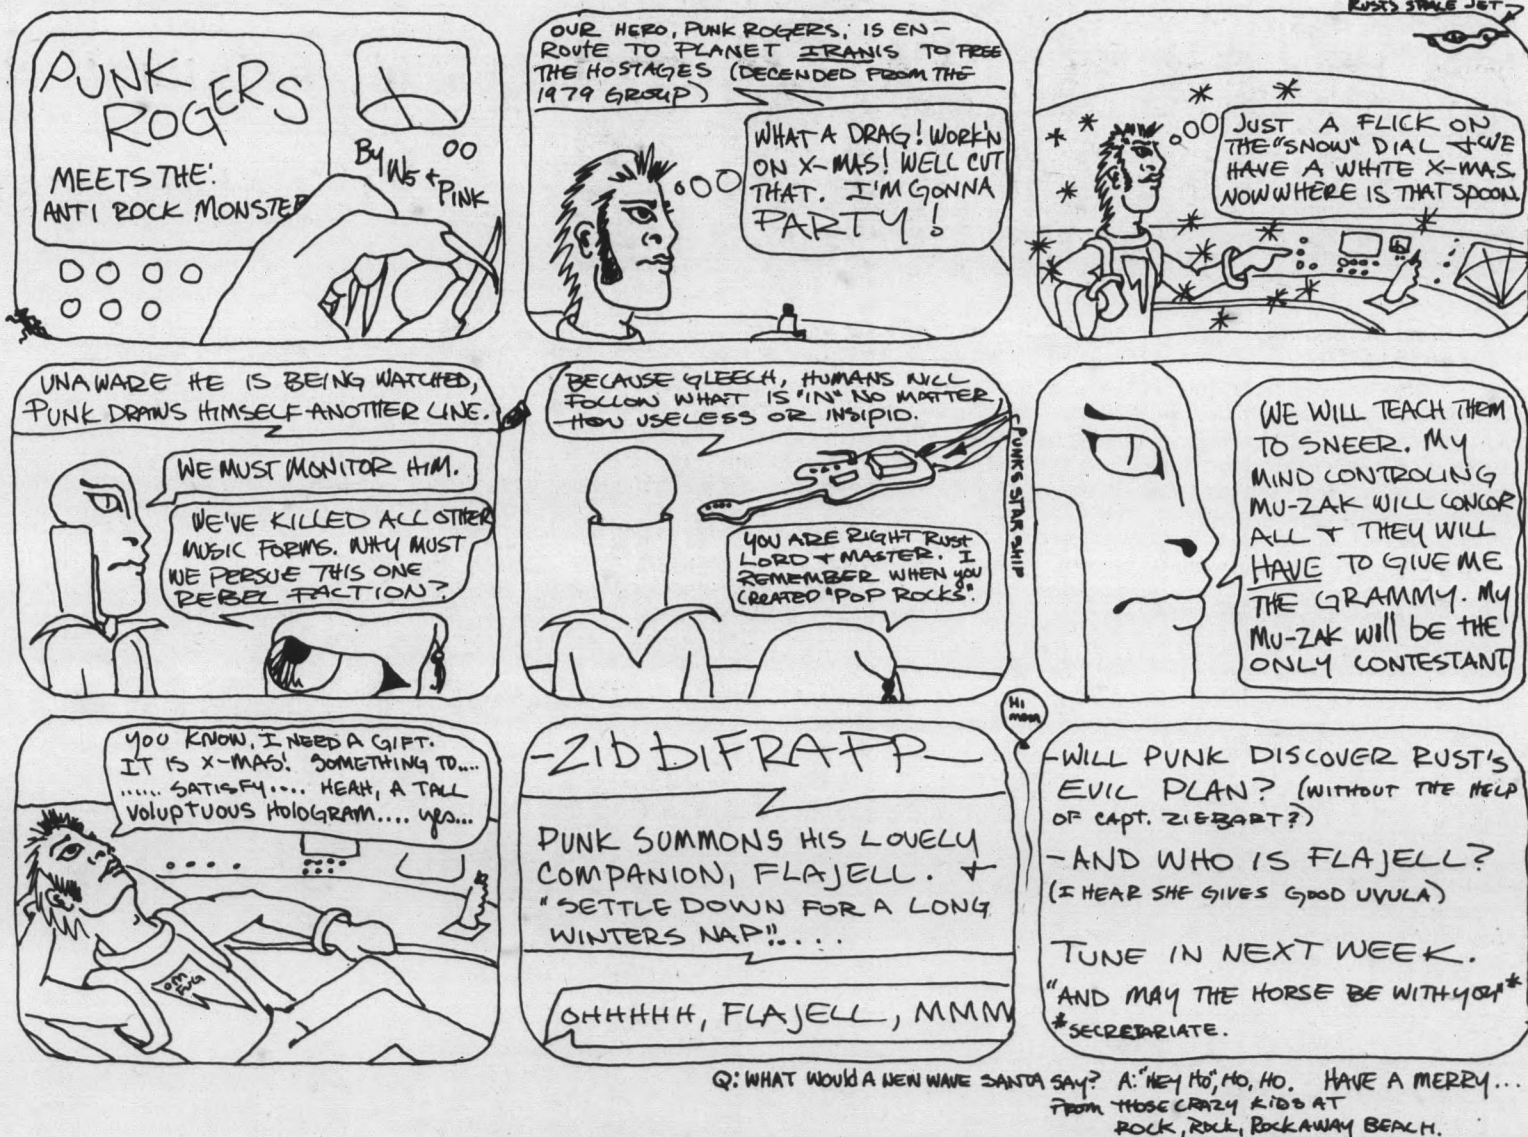 PUNK
ROGERS
MEETS THE:
ANTI ROCK MONSTER
By WS +
PINK
OUR HERO, PUNK ROGERS, IS EN-
ROUTE TO PLANET IRANIS TO FREE
THE HOSTAGES (DECENDED FROM THE
1979 GROUP)
WHAT A DRAG! WORK'N
ON X-MAS! WELL CUT
THAT. I'M GONNA
PARTY!
RUST'S SPACE JET
JUST A FLICK ON
THE "SNOW" DIAL + WE
HAVE A WHITE X-MAS.
NOW WHERE IS THAT SPOON.
UNAWARE HE IS BEING WATCHED,
PUNK DRAWS HIMSELF ANOTHER LINE.
WE MUST MONITOR HIM.
WE'VE KILLED ALL OTHER
MUSIC FORMS. WHY MUST
WE PERSUE THIS ONE
REBEL FACTION?
BECAUSE GLEECH, HUMANS WILL
FOLLOW WHAT IS "IN" NO MATTER
HOW USELESS OR INSIPID.
PUNKS STAR SHIP
YOU ARE RIGHT RUST
LORD + MASTER. I
REMEMBER WHEN YOU
CREATED "POP ROCKS".
WE WILL TEACH THEM
TO SNEER. MY
MIND CONTROLING
MU-ZAK WILL CONCOR
ALL + THEY WILL
HAVE TO GIVE ME
THE GRAMMY. MY
MU-ZAK WILL BE THE
ONLY CONTESTANT
YOU KNOW, I NEED A GIFT.
IT IS X-MAS! SOMETHING TO....
...... SATISFY.... HEAH, A TALL
VOLUPTUOUS HOLOGRAM.... yes...
OM
FUG
-ZIDDIFRAPP-
PUNK SUMMONS HIS LOVELY
COMPANION, FLAJELL. +
"SETTLE DOWN FOR A LONG
WINTERS NAP"!....
OHHHHH, FLAJELL, MMM
HI
MOM
-WILL PUNK DISCOVER RUST'S
EVIL PLAN? (WITHOUT THE HELP
OF CAPT. ZIEBART?)
-AND WHO IS FLAJELL?
(I HEAR SHE GIVES GOOD UVULA)
TUNE IN NEXT WEEK.
"AND MAY THE HORSE BE WITH YOU"*
*SECRETARIATE.
Q: WHAT WOULD A NEW WAVE SANTA SAY? A: "HEY HO", HO, HO. HAVE A MERRY...
FROM THOSE CRAZY KIDS AT
ROCK, ROCK, ROCKAWAY BEACH.